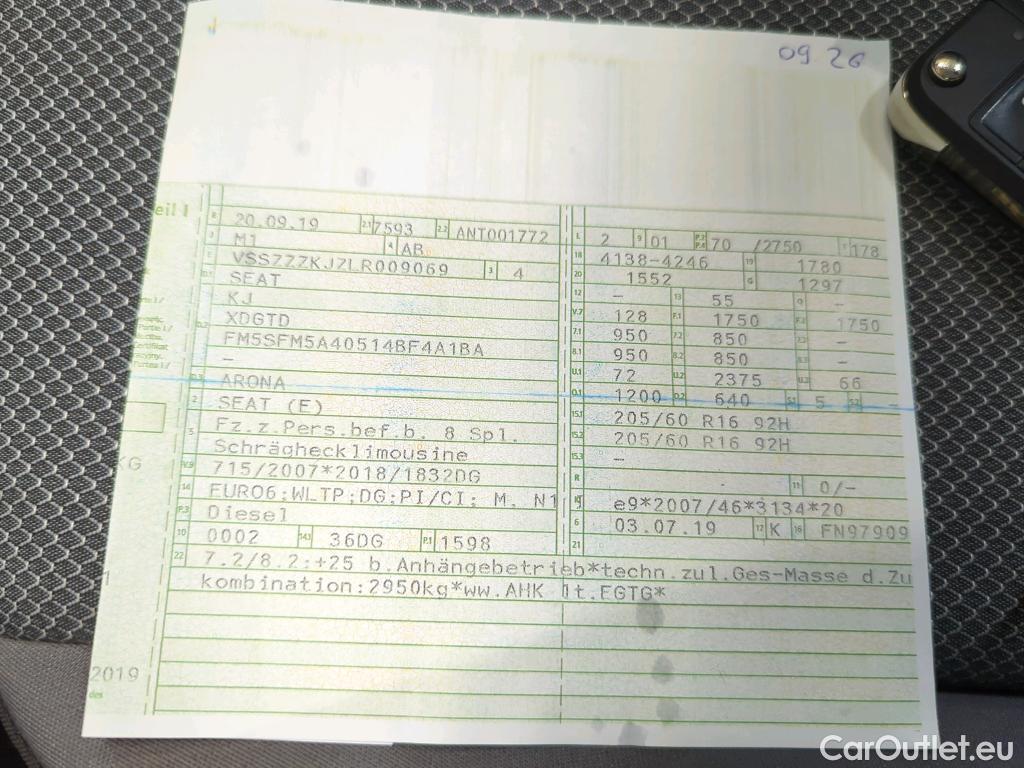 09.26
eil I
B 20.09.19 2.1 7593 2.2 ANT001772
J M1 4 AB
E VSSZZZKJZLR009069 3 4
D.1 SEAT
KJ
D.2 XDGTD
FM5SFM5A40514BF4A1BA
–
D.3 ARONA
2 SEAT (E)
5 Fz.z.Pers.bef.b. 8 Spl.
Schräghecklimousine
V.9 715/2007*2018/1832DG
14 EURO6;WLTP;DG;PI/CI; M, N1 I
P.3 Diesel
10 0002 14.1 36DG P.1 1598
L 2 9 01 P.2 P.4 70 /2750 T 178
18 4138-4246 19 1780
20 1552 G 1297
12 – 13 55 Q –
V.7 128 F.1 1750 F.2 1750
7.1 950 7.2 850 7.3 –
8.1 950 8.2 850 8.3 –
U.1 72 U.2 2375 U.3 66
O.1 1200 O.2 640 S.1 5 S.2 –
15.1 205/60 R16 92H
15.2 205/60 R16 92H
15.3 –
R - 11 0/–
K e9*2007/46*3134*20
6 03.07.19 17 K 16 FN97909
21
22 7.2/8.2:+25 b.Anhängebetrieb*techn.zul.Ges-Masse d.Zu
kombination:2950kg*ww.AHK lt.EGTG*
KG
1
2019
des
CarOutlet.eu